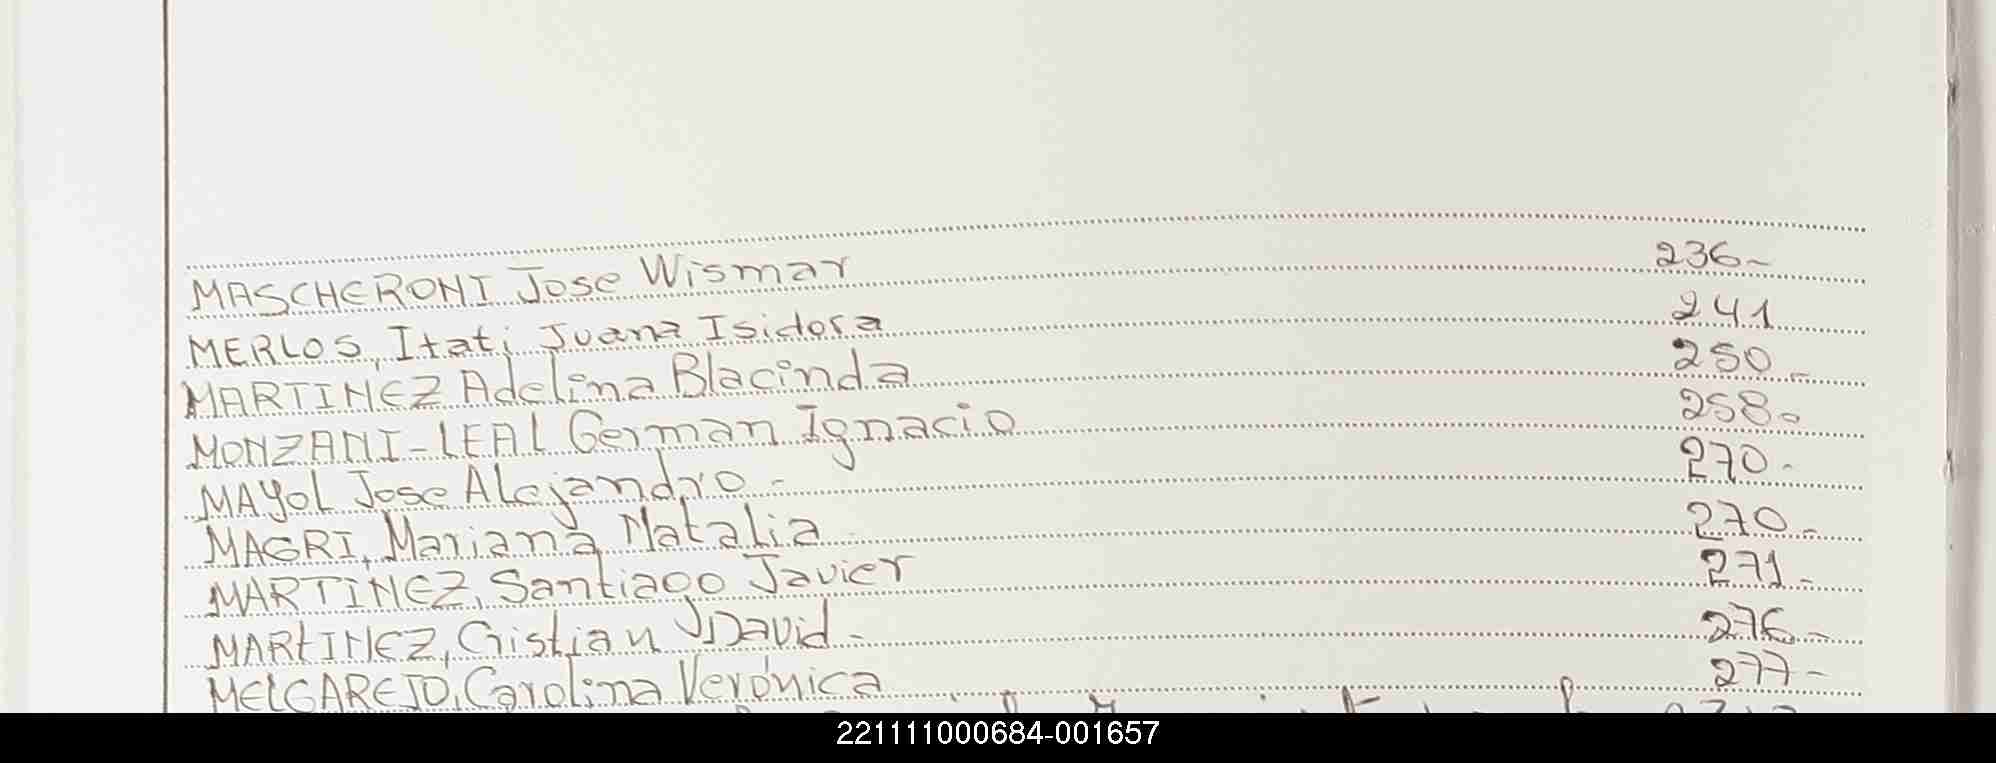 MASCHERONI Jose Wismar 236-
MERLOS, Itati Juana Isidora 241
MARTINEZ Adelina Blacinda 250-
MONZANI-LEAL German Ignacio 258-
MAYOL Jose Alejandro.- 270.-
MAGRI, Mariana Natalia 270.-
MARTINEZ, Santiago Javier 271-
MARtINEZ, Cristian David.- 276.-
MELGAREJO, Carolina Verónica 277-
221111000684-001657